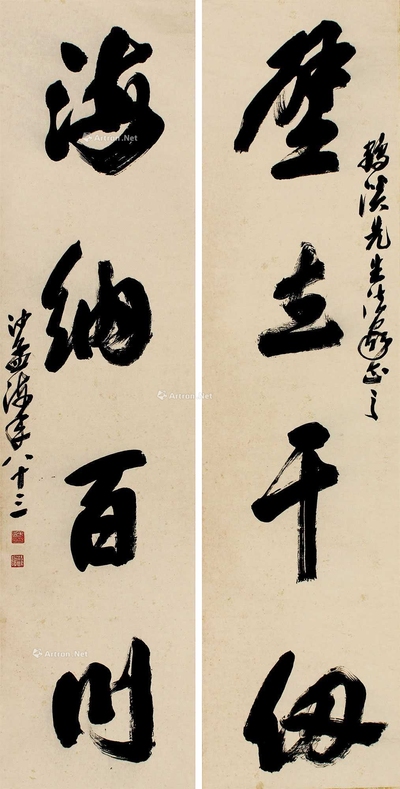 壁立千仞
鹤溪先生法家正之
海纳百川
沙孟海年八十三
Artron.Net
Artron.Net
Artron.Net